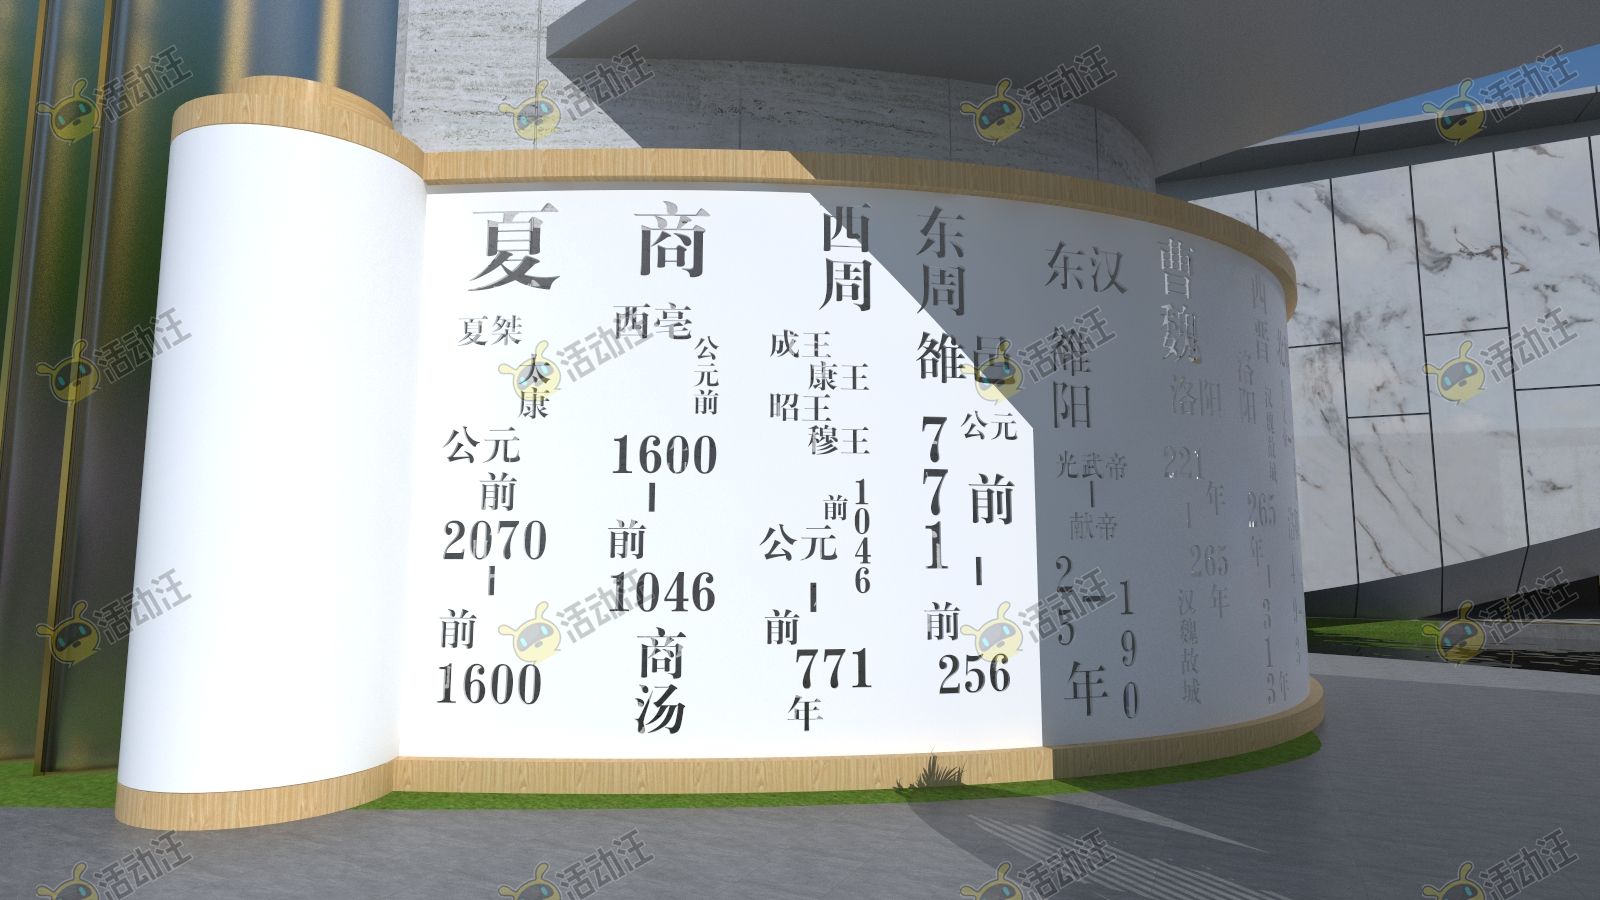 夏
夏桀
太康
公元
前
2070
-
前
1600
商
西亳
公元前
1600
-
前
1046
商
汤
西周
成王
康王
昭王
穆王
前
1046
公元
-
前
771
年
东周
雒邑
公元
771
前
-
前
256
东汉
雒阳
光武帝
-
献帝
25
-
190
年
曹魏
洛阳
221
年
-
265
年
汉魏故城
西晋
洛阳
265
年
-
313
年
活动汪